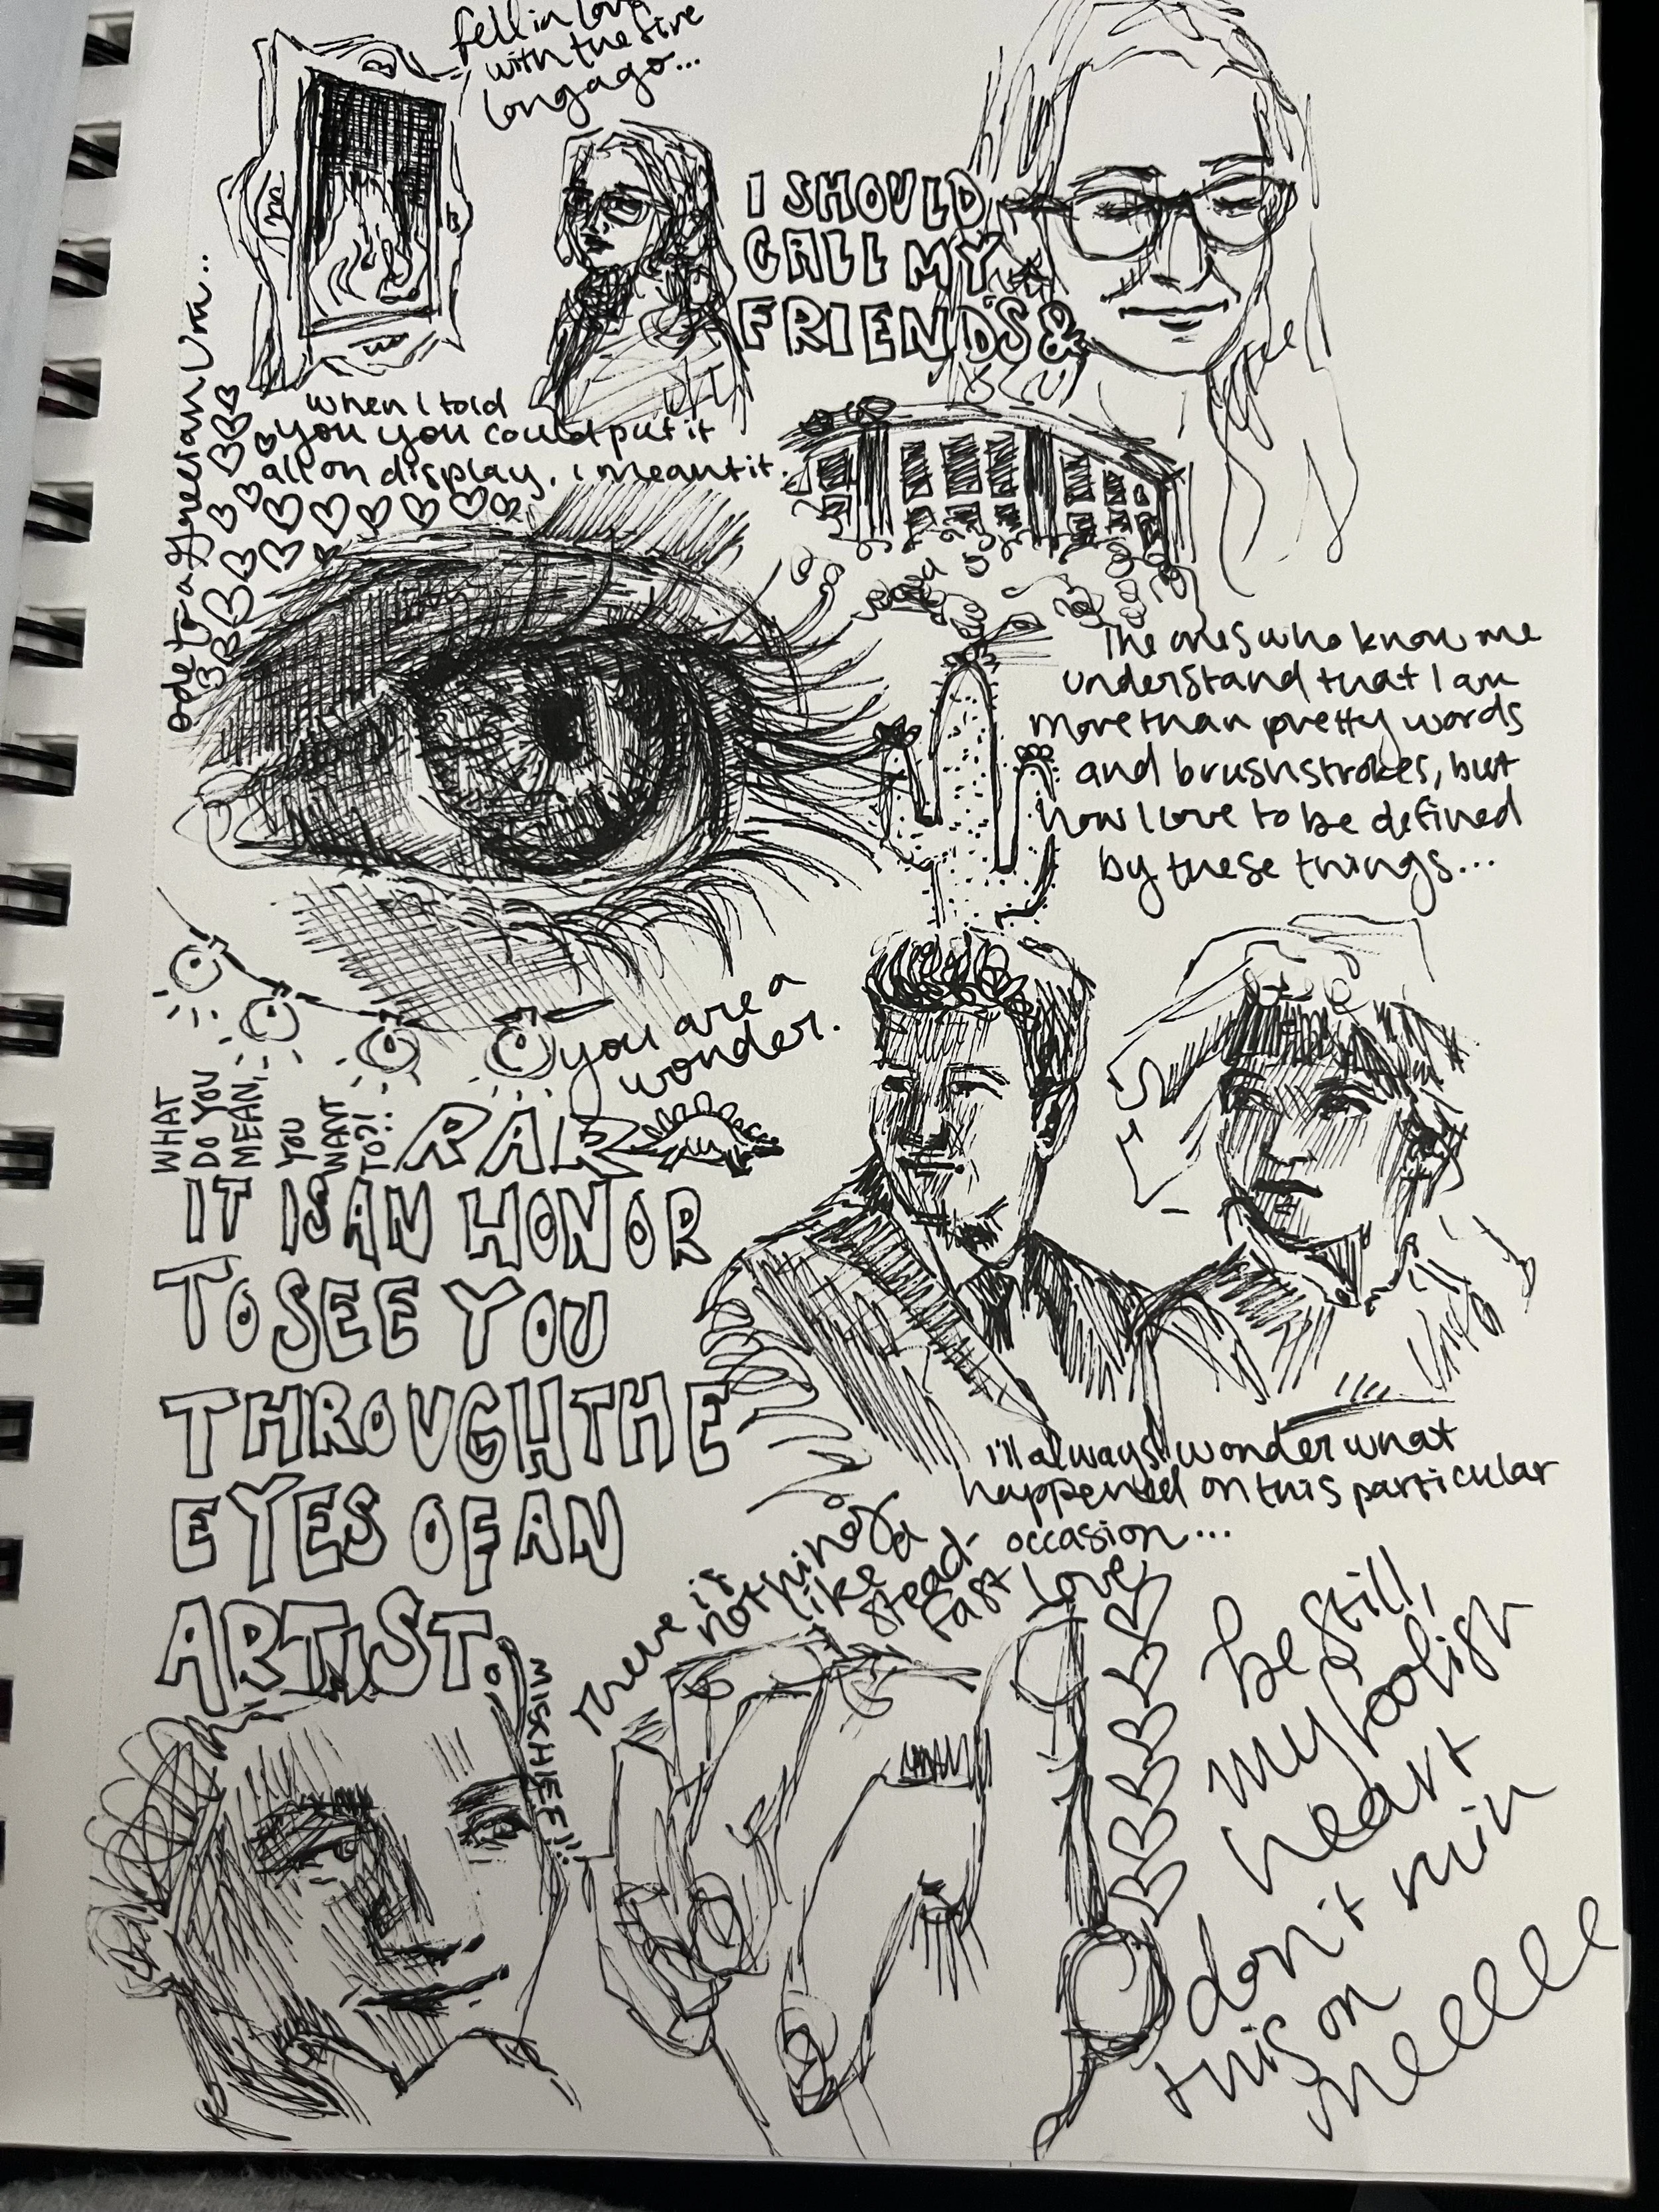 fell in love
with the fire
long ago...
I SHOULD
CALL MY
FRIENDS &
ode to a Grecian Urn...
when I told
you you could put it
all on display, i meant it.
The ones who know me
understand that I am
more than pretty words
and brushstrokes, but
how I love to be defined
by these things...
you are a
wonder.
WHAT
DO YOU
MEAN,
YOU
WANT
TO?!
RAR
IT IS AN HONOR
TO SEE YOU
THROUGH THE
EYES OF AN
ARTIST.
i'll always wonder what
happened on this particular
occasion...
There is
nothing
like a
stead-
fast love
MISCHIEF!!
be still,
my foolish
heart
don't ruin
this on
meeeee